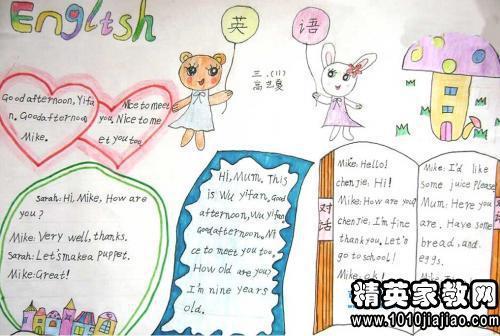 English
英
语
三.(1)
高艺夏
Good afternoon, Yifa
n. Good afternoon,
Mike.
Nice to meet
you. Nice to me
et you too.
Sarah: Hi, Mike, How are
you?
Mike: Very well, thanks.
Sarah: Let's make a puppet.
Mike: Great!
Hi, Mum. This
is Wu Yifan. Good
afternoon, Wu Yifan.
Good afternoon. Ni
ce to meet you too.
How old are you?
I'm nine years
old.
对话
Mike: Hello!
chenjie, Hi!
Mike: How are you?
chenjie, I'm fine
thank you. Let's
go to school!
Mike: ok!
Mike: I'd like
some juice Please.
Mum: Here you
are. Have some
bread, and.
eggs.
对话
精英家教网
www.1010jiajiao.com